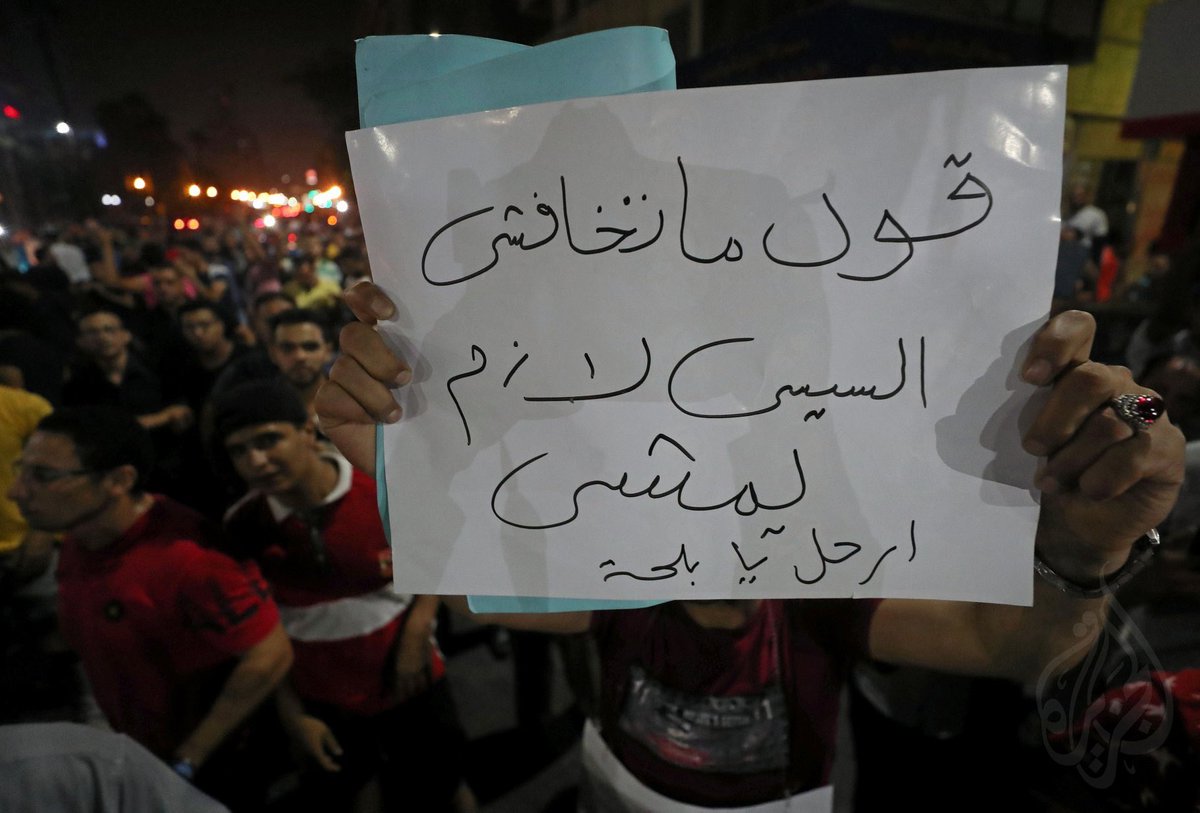 قول ماتخافشي
السيسي لازم
يمشي
ارحل يا بلحة
الجزيرة